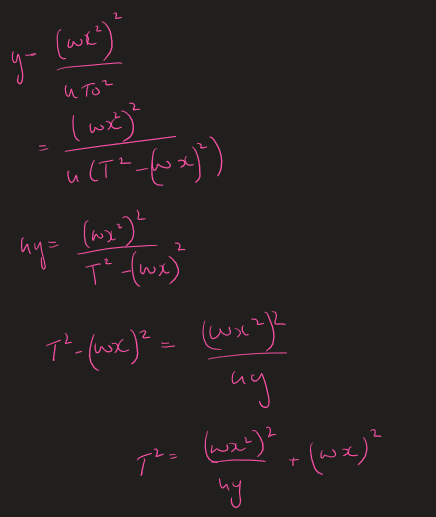 y = \frac{(wx^2)^2}{4 To^2}
= \frac{(wx^2)^2}{4 (T^2 - (wx)^2)}
4y = \frac{(wx^2)^2}{T^2 - (wx)^2}
T^2 - (wx)^2 = \frac{(wx^2)^2}{4y}
T^2 = \frac{(wx^2)^2}{4y} + (wx)^2